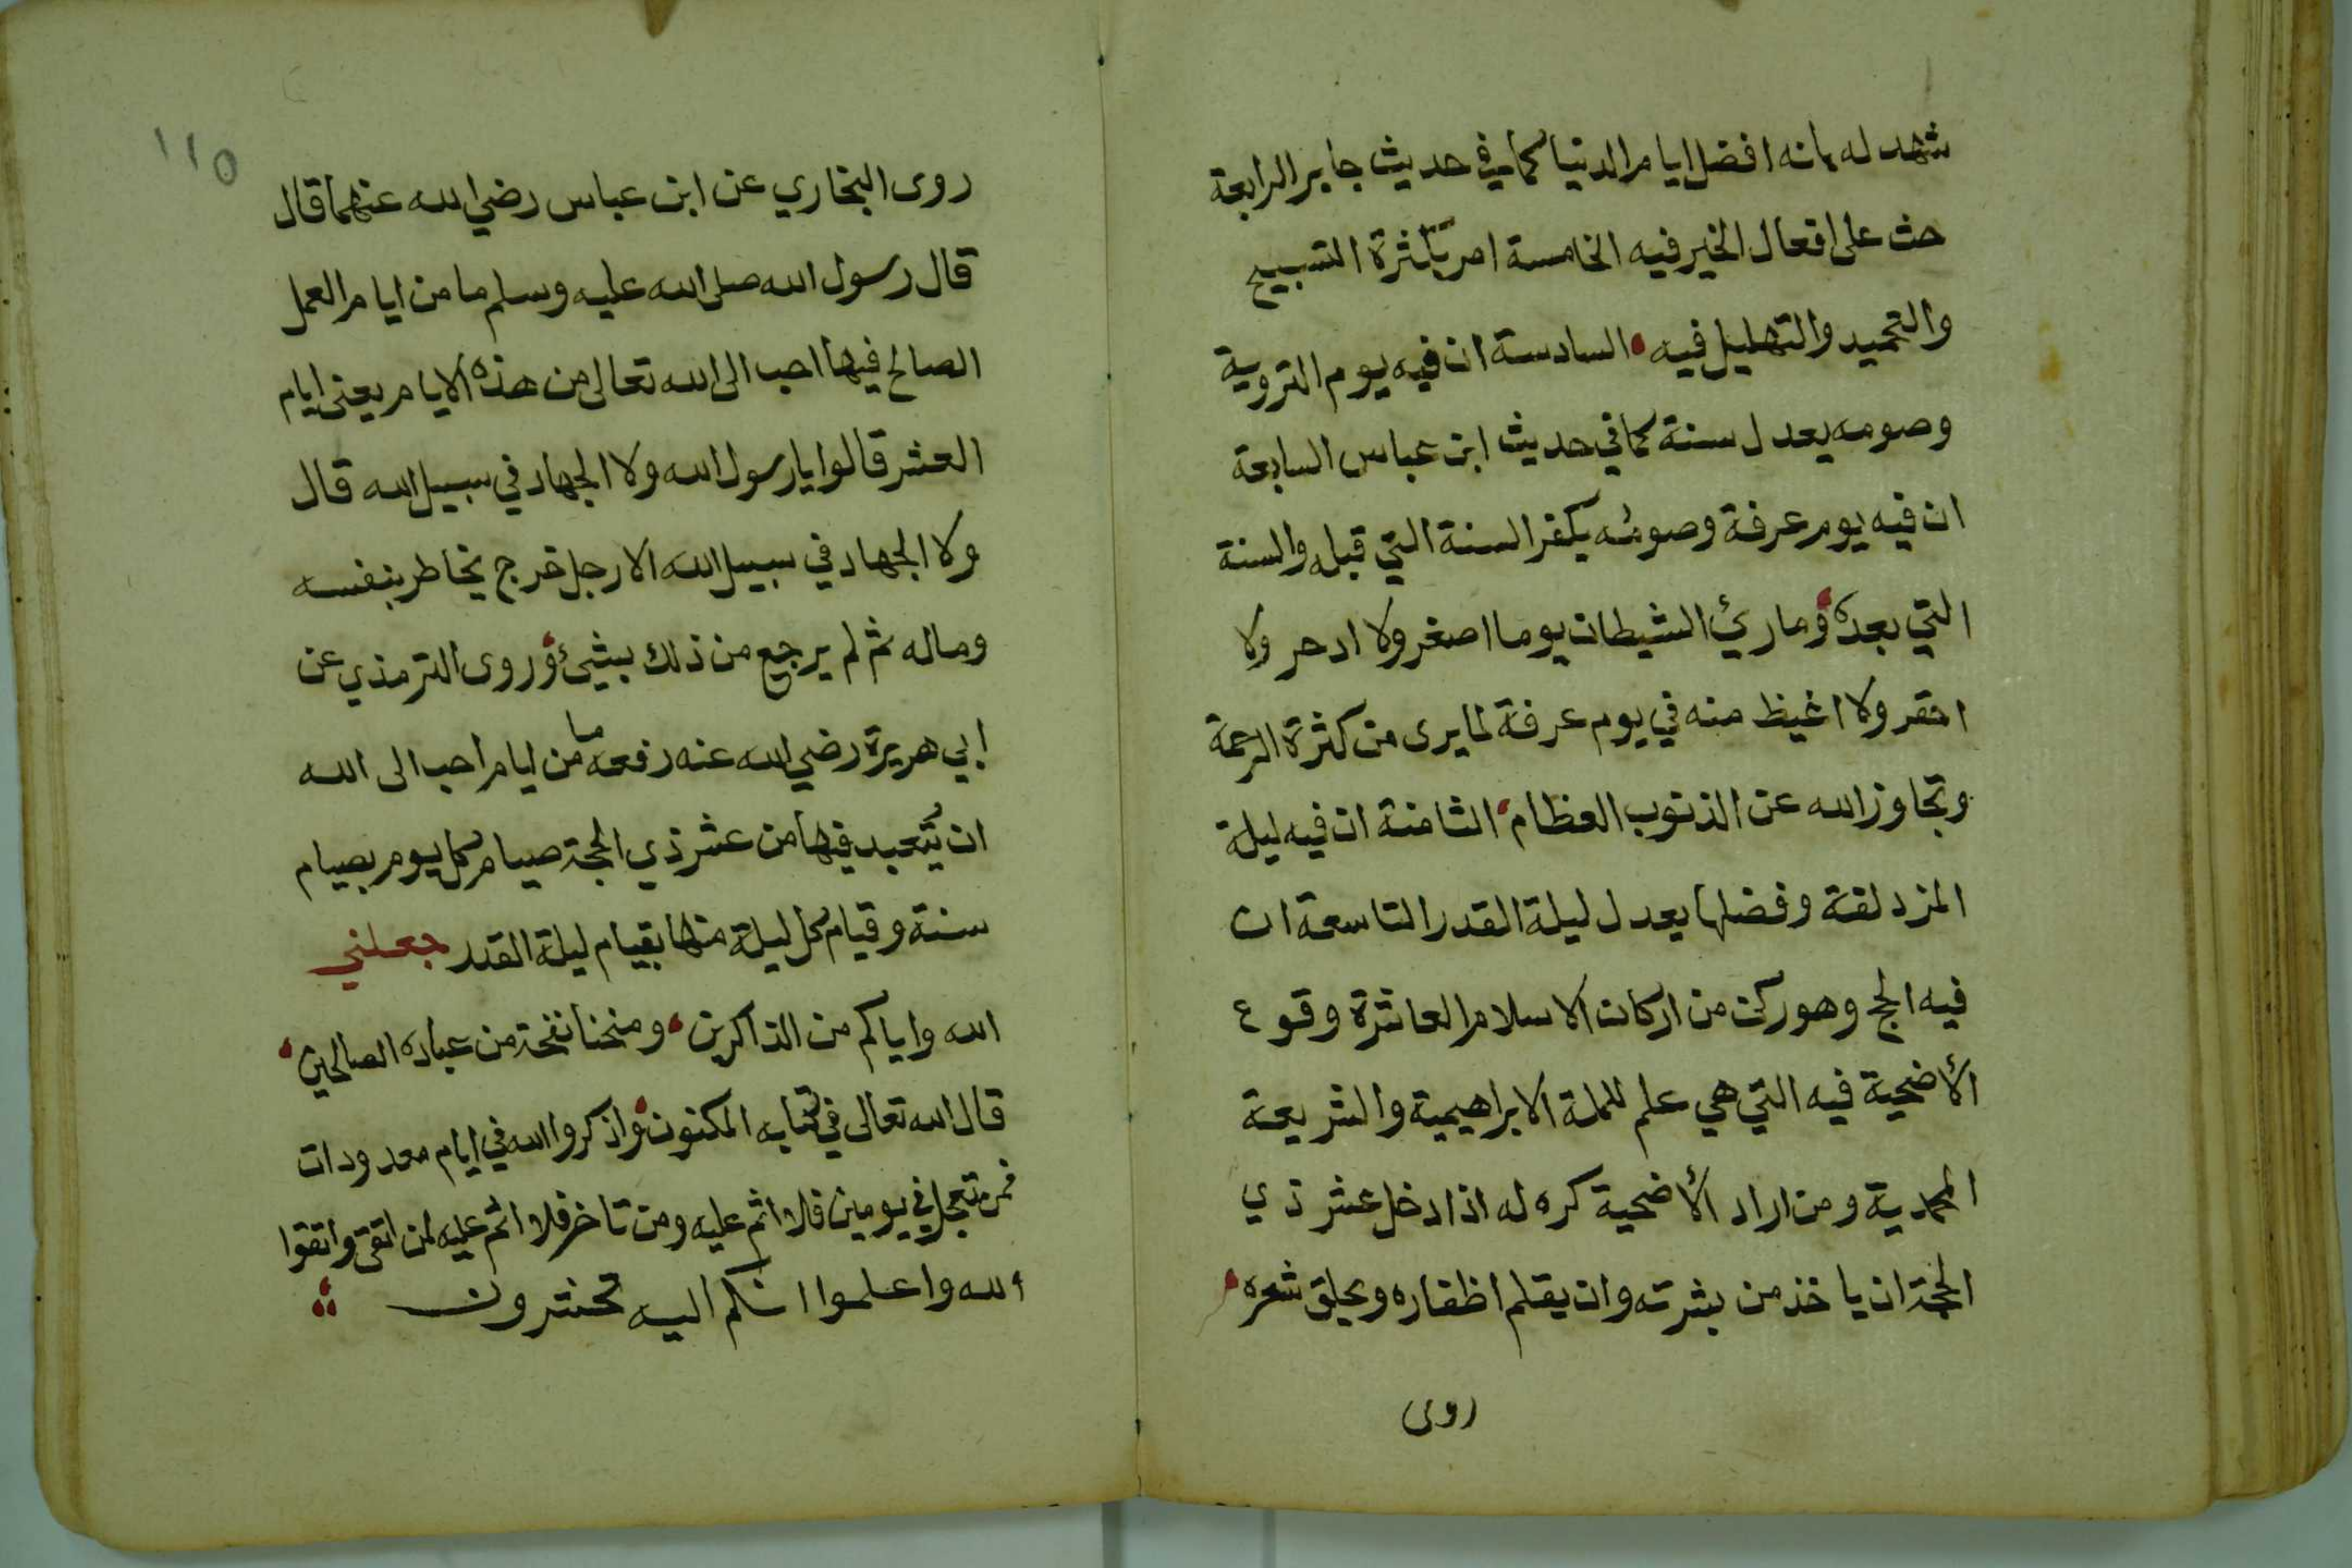 شهد له بانه افضل ايام الدنيا كما في حديث جابر الرابعة
حث على افعال الخير فيه الخامسة امر بكثرة التسبيح
والتحميد والتهليل فيه السادسة ان فيه يوم التروية
وصومه يعدل سنة كما في حديث ابن عباس السابعة
ان فيه يوم عرفة وصومُه يكفر السنة التي قبله والسنة
التي بعده وما رئ الشيطان يوما اصغر ولا ادحر ولا
احقر ولا اغيظ منه في يوم عرفة لما يرى من كثرة الرحمة
وتجاوز الله عن الذنوب العظام الثامنة ان فيه ليلة
المزدلفة وفضلها يعدل ليلة القدر التاسعة ان
فيه الحج وهو ركن من اركان الاسلام العاشرة وقوع
الأضحية فيه التي هي علم للملة الابراهيمية والشريعة
المحمدية ومن اراد الأضحية كره له اذا دخل عشر ذي
الحجة ان ياخذ من بشرته وان يقلم اظفاره ويحلق شعره
روى
١١٥
روى البخاري عن ابن عباس رضي الله عنهما قال
قال رسول الله صلى الله عليه وسلم ما من ايام العمل
الصالح فيها احب الى الله تعالى من هذه الايام يعنى ايام
العشر قالوا يا رسول الله ولا الجهاد في سبيل الله قال
ولا الجهاد في سبيل الله الا رجل خرج يخاطر بنفسه
وماله ثم لم يرجع من ذلك بشيئ وروى الترمذي عن
ابي هريرة رضي الله عنه رفعه ما من ايام احب الى الله
ان يُتعبد فيها من عشر ذي الحجة صيام كل يوم بصيام
سنة وقيام كل ليلة منها بقيام ليلة القدر جعلني
الله واياكم من الذاكرين ومنحنا نفحة من عباده الصالحين
قال الله تعالى في كتابه المكنون واذكروا الله في ايام معدودات
فمن تعجل في يومين فلا اثم عليه ومن تاخر فلا اثم عليه لمن اتقى واتقوا
الله واعلموا انكم اليه تحشرون